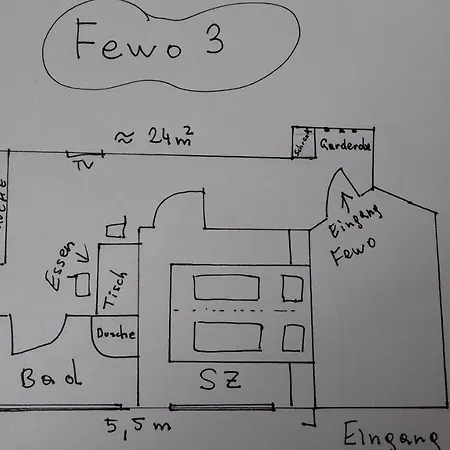 Fewo 3
≈ 24 m²
Schrank
Garderobe
TV
Eingang
Fewo
Essen
Tisch
Dusche
Bad
SZ
5,5 m
Eingang